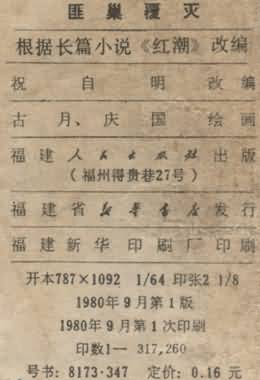 匪巢覆灭
根据长篇小说《红潮》改编
祝自明改编
古月、庆国绘画
福建人民出版社出版
(福州得贵巷27号)
福建省新华书店发行
福建新华印刷厂印刷
开本787×1092 1/64 印张2 1/8
1980年9月第1版
1980年9月第1次印刷
印数1— 317,260
号书: 8173·347 定价: 0.16 元